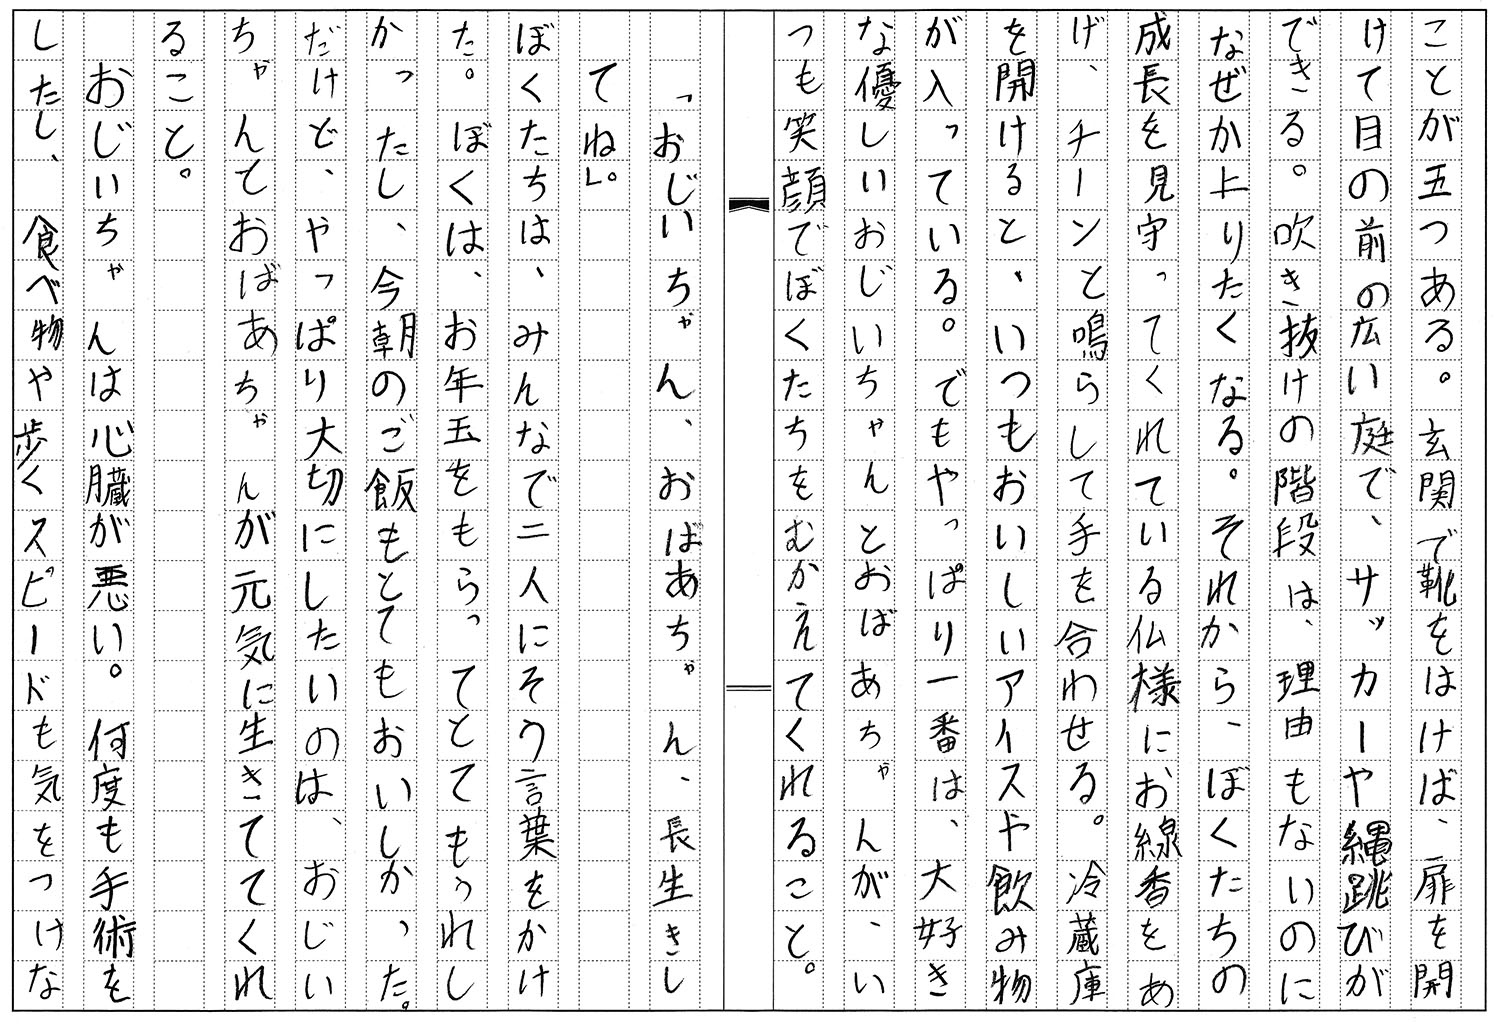 ことが五つある。玄関で靴をはけば、扉を開
けて目の前の広い庭で、サッカーや縄跳びが
できる。吹き抜けの階段は、理由もないのに
なぜか上りたくなる。それから、ぼくたちの
成長を見守ってくれている仏様にお線香をあ
げ、チーンと鳴らして手を合わせる。冷蔵庫
を開けると、いつもおいしいアイスや飲み物
が入っている。でもやっぱり一番は、大好き
な優しいおじいちゃんとおばあちゃんが、い
つも笑顔でぼくたちをむかえてくれること。
「おじいちゃん、おばあちゃん、長生きし
てね」。
ぼくたちは、みんなで二人にそう言葉をかけ
た。ぼくは、お年玉をもらってとてもうれし
かったし、今朝のご飯もとてもおいしかった。
だけど、やっぱり大切にしたいのは、おじい
ちゃんておばあちゃんが元気に生きてくれ
ること。
おじいちゃんは心臓が悪い。何度も手術を
したし、食べ物や歩くスピードも気をつけな